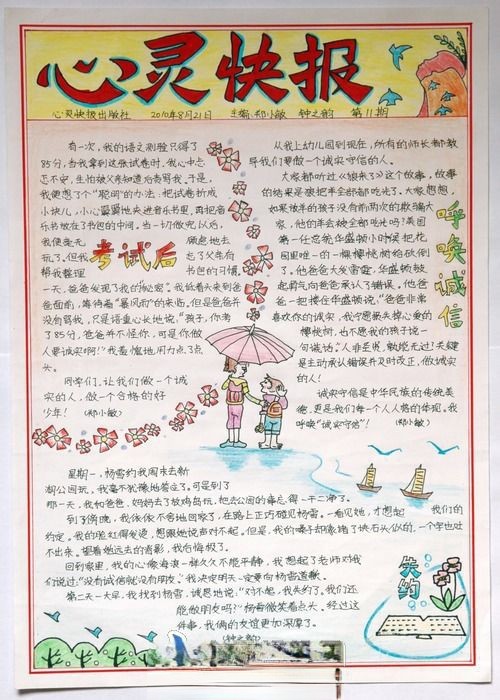 心灵快报
心灵快报出版社 2010年8月21日 主编:郑小敏 钟之韵 第11期
考试后
有一次，我的语文测验只得了
85分，当我拿到这张试卷时，我心中忐
忑不安，生怕被父亲知道后责骂我。于是，
我便想了个“聪明”的办法：把试卷折成
小块儿，小心翼翼地夹进音乐书里，再把音
乐书放在了书包的中间。当一切做完以后，
我便毫无顾忌地去
玩了。但我忘了父亲有
帮我整理书包的习惯，
一天，爸爸发现了我的秘密。我低着头来到爸
爸面前，等待着“暴风雨”的来临。但是爸爸并
没有骂我，只是语重心长地说：“孩子，你考
了85分，爸爸并不怪你，可是你做
人要诚实啊！”我羞愧地用力点了点
头。
同学们，让我们做一个诚
实的人，做一个合格的好
少年！ (郑小敏)
呼唤诚信
从我上幼儿园到现在，所有的师长都教
导我们要做一个诚实守信的人。
大家都听过《狼来了》这个故事，故事
的结果是狼把羊全部都吃光了。大家想想，
如果放羊的孩子没有前两次的欺骗大
家，他的羊会被全部吃光吗？美国
第一任总统华盛顿小时候把花
园里唯一的一棵樱桃树给砍倒
了。他爸爸大发雷霆，华盛顿鼓
起勇气向爸爸承认了错误。他爸
爸一把搂住华盛顿说：“爸爸非常
喜欢你的诚实，我宁愿损失掉心爱的
樱桃树，也不愿我的孩子说一
句谎话。”人非圣贤，孰能无过！关键
是主动承认错误并及时改正，做诚实
的人！
诚实守信是中华民族的传统美
德，更是我们每一个人人格的体现。我
呼唤“诚实守信”！ (郑小敏)
失约
星期一，杨雪约我周末去新
湖公园玩，我毫不犹豫地答应了。可是到了
那一天，我和爸爸、妈妈去了放鸡岛玩，把去公园的事忘得一干二净了。
到了傍晚，我依依不舍地回家了，在路上正巧碰见杨雪。一看见她，才想起我们的
约定。我的脸红得发烫，想跟她说声对不起。但是，我的嗓子却像堵了块石头似的，一个字也吐
不出来。望着她远去的背影，我后悔极了。
回到家里，我的心像海浪一样久久不能平静，我想起了老师对我
们说过：“没有诚信就没有朋友。”我决定明天一定要向杨雪道歉。
第二天一大早，我找到杨雪，诚恳地说：“对不起，我失约了。我们还
能做朋友吗？”杨雪微笑着点头。经过这
件事，我俩的友谊更加深厚了。
(钟之韵)